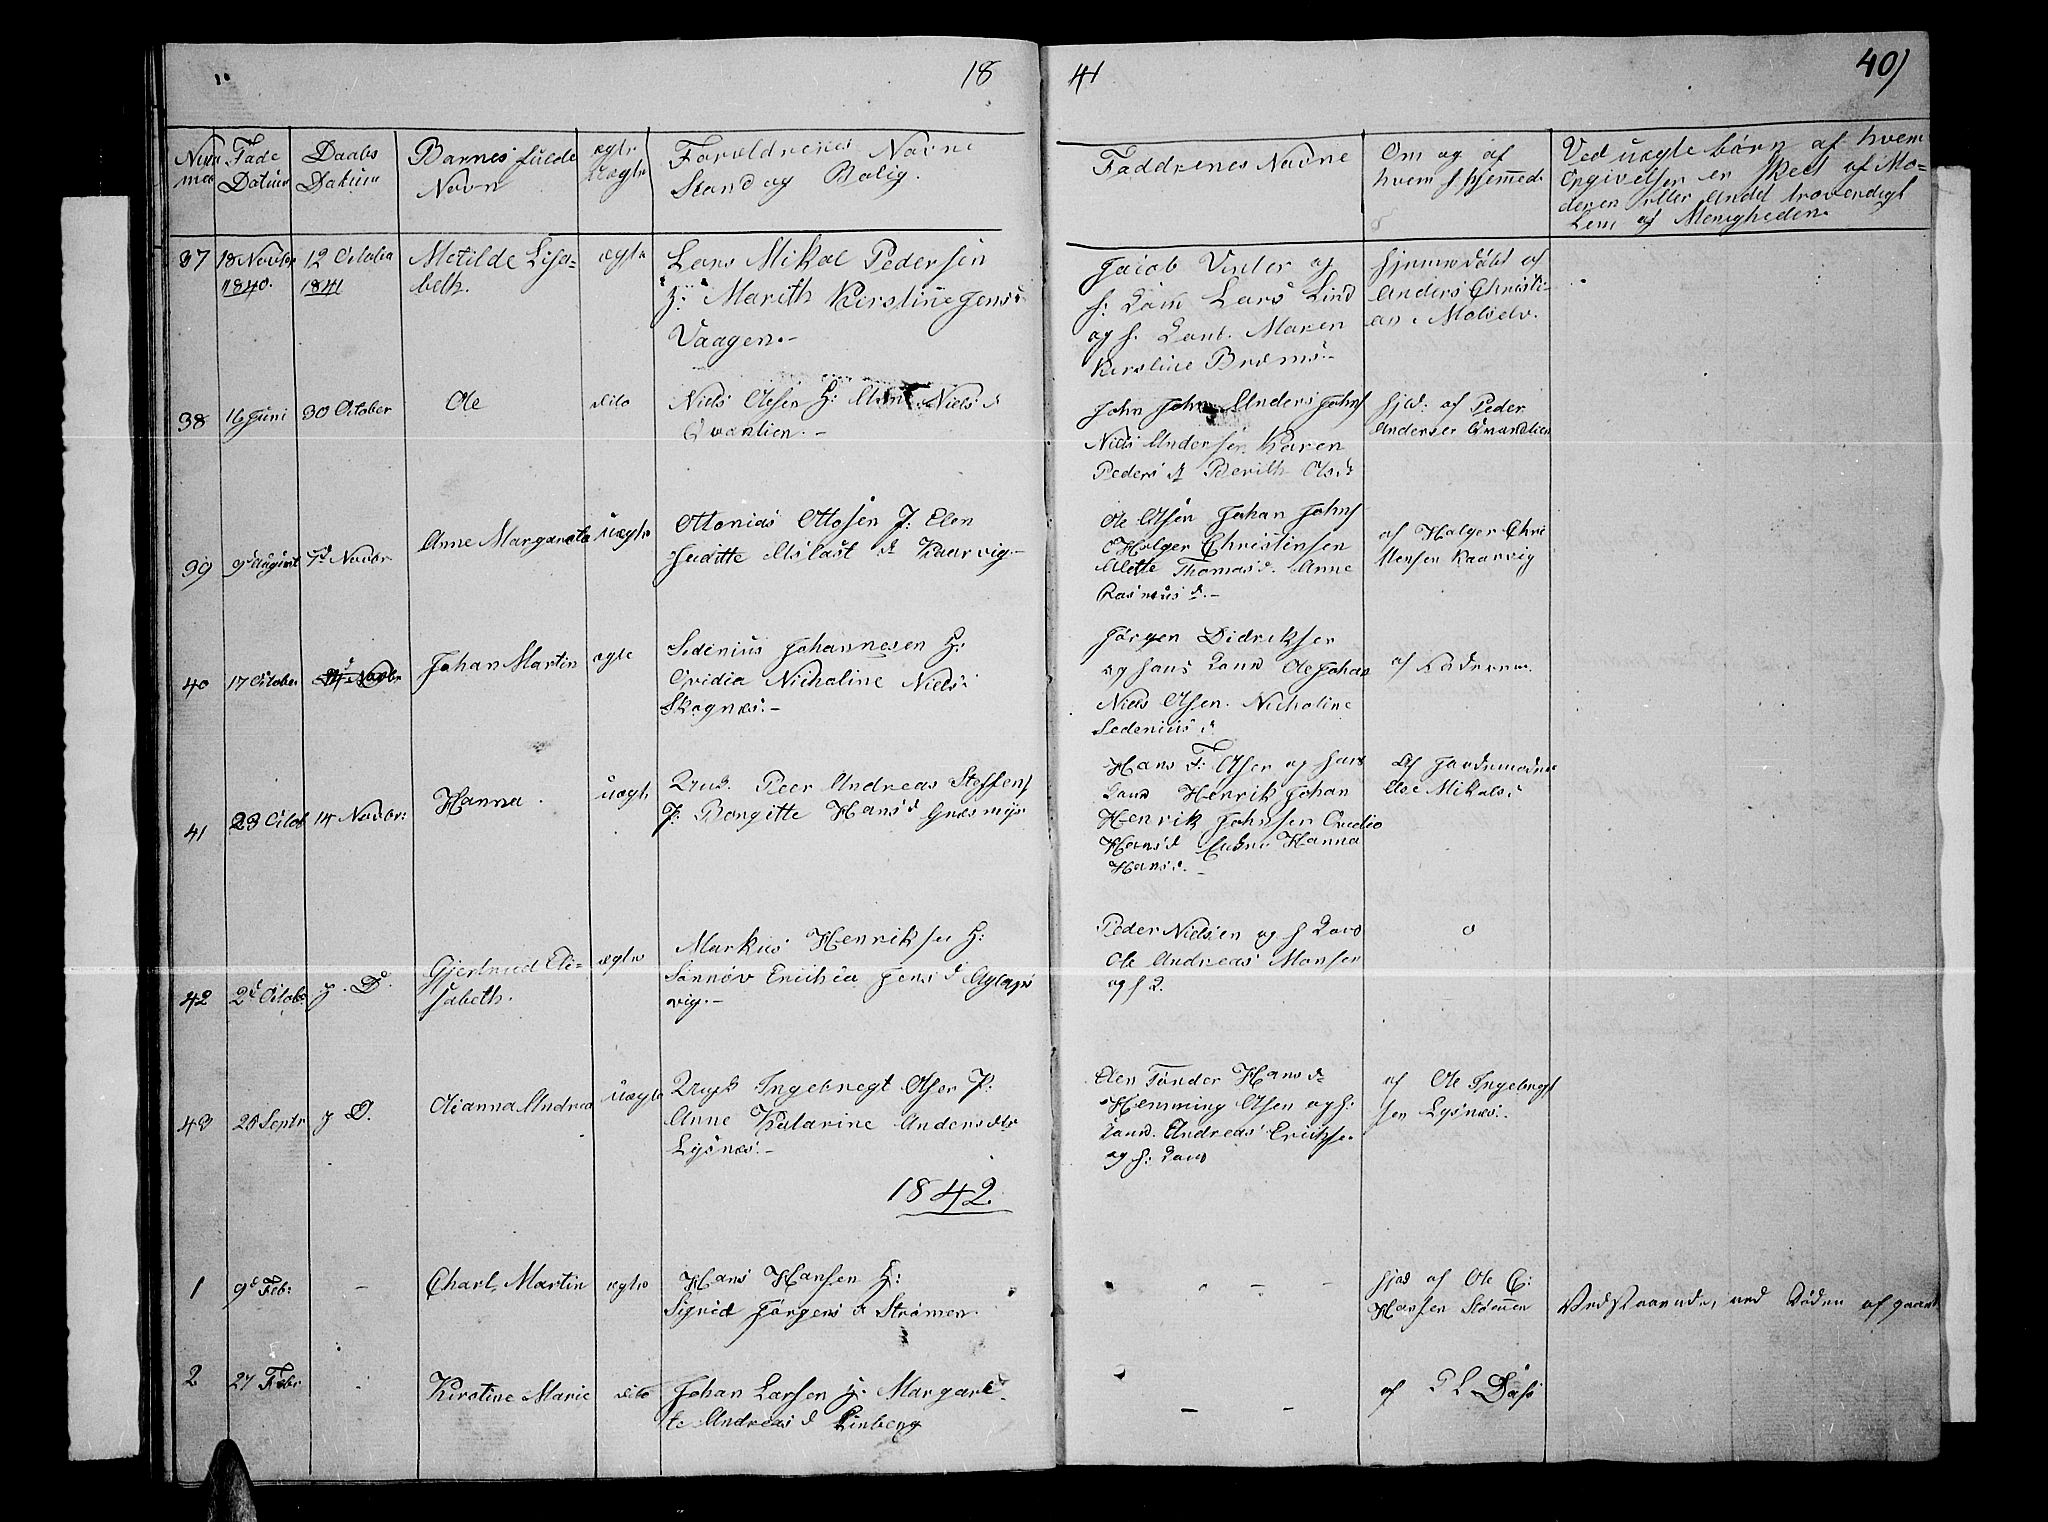 18
41
40
Num
mer
Føde
Datum
Daabs
Datum
Barnes fulde
Navn
ægte
Uægte
Forældrenes Navne
Stand og Bolig.
Faddrenes Navne
Om og af
hvem hjemmed.
Ved uægte børn af hvem
Opgivelsen er skeet af Mo-
deren eller Andet troværdigt
Lem af Menigheden.
37
18 Novbr
1840.
12 October
1841
Metilde Lisa-
beth.
ægte
Lars Mikal Pedersen
H: Marith Kerstine Jens
Vaagen.-
Jacob Vinter og
h: Lars Lind
og h. Maren
Kerstine
hjemmedøbt af
Anders Christi-
an Molselv.
38
16 Juni
30 October
Ole
dito
Niels Olsen H: Niels d
Qvanlien.-
John John Anders Johns
Niels Andersen Karen
Peders d Berith Ols d
hjd: af Peder
Andersen Qvanlien
39
9 August
7d Novbr.
Anne Margareta
Uægte
Ottonius Ottosen P: Elen
Juditte Aslast d Kaarvig.-
Ole Olsen Johan Johns
Holger Christensen
Alette Thomas d. Anne
Rasmus d.-
af Holger Chri
stensen Kaarvig
40
17 October
Johan Martin
ægte
Sedenius Johannesen H:
Ovidia Nicholine Niels
Skognæs.-
Jørgen Didriksen
og hans Ole Johan
Niels Olsen. Nicholine
Sedenius d
af Faderen.
41
23 Octob
14 Novbr:
Hanna.
Uægte
Peer Andreas Steffens
P: Bergitte Hans d Grasmyr
Hans F: Olsen og hans
Henrik Johan
Henrik Johnsen Ovidia
Hans d Hanna
Hans d.-
Af Jordemoder
Else Mikals d
42
2d Octobr
D.
Gjertrud Eli-
sabeth.
ægte
Markus Henriksen H:
Erichia Jens d
vig.-
Peder Nielsen og h
Ole Andreas Monsen
og h
o
43
28 Septr
D.
Oleanna Andrea
Uægte
Ingebregt Olsen P:
Anne Katarine Anders dtr
Lysnæs.-
Elen Tønder Hans d
Hemming Olsen og h:
Andreas Eriksen
og h:
af Ole Ingebregt
sen Lysnæs.
1842
1
9d Feb:
-
Charl Martin
ægte
Hans Hansen H:
Sigrid Jørgens d Strømen.
- - -
hjd af Ole C:
Hansen Strømen
Vedstaaende, ved Døden af gaaet
2
27 Febr
Kirstine Marie
dito
Johan Larsen H: Margare
te Andreas d Linberg
- -
af P L Dass